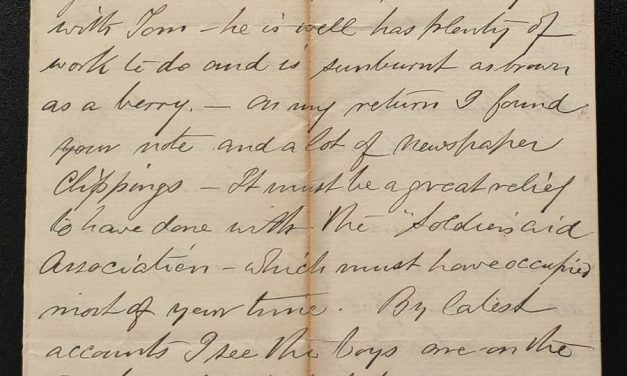 with Tom - he is well has plenty of
work to do and is sunburnt as brown
as a berry. - On my return I found
your note and a lot of newspaper
Clippings - It must be a great relief
to have done with the "Soldiers aid
Association - which must have occupied
most of your time. By latest
accounts I see the boys are on the